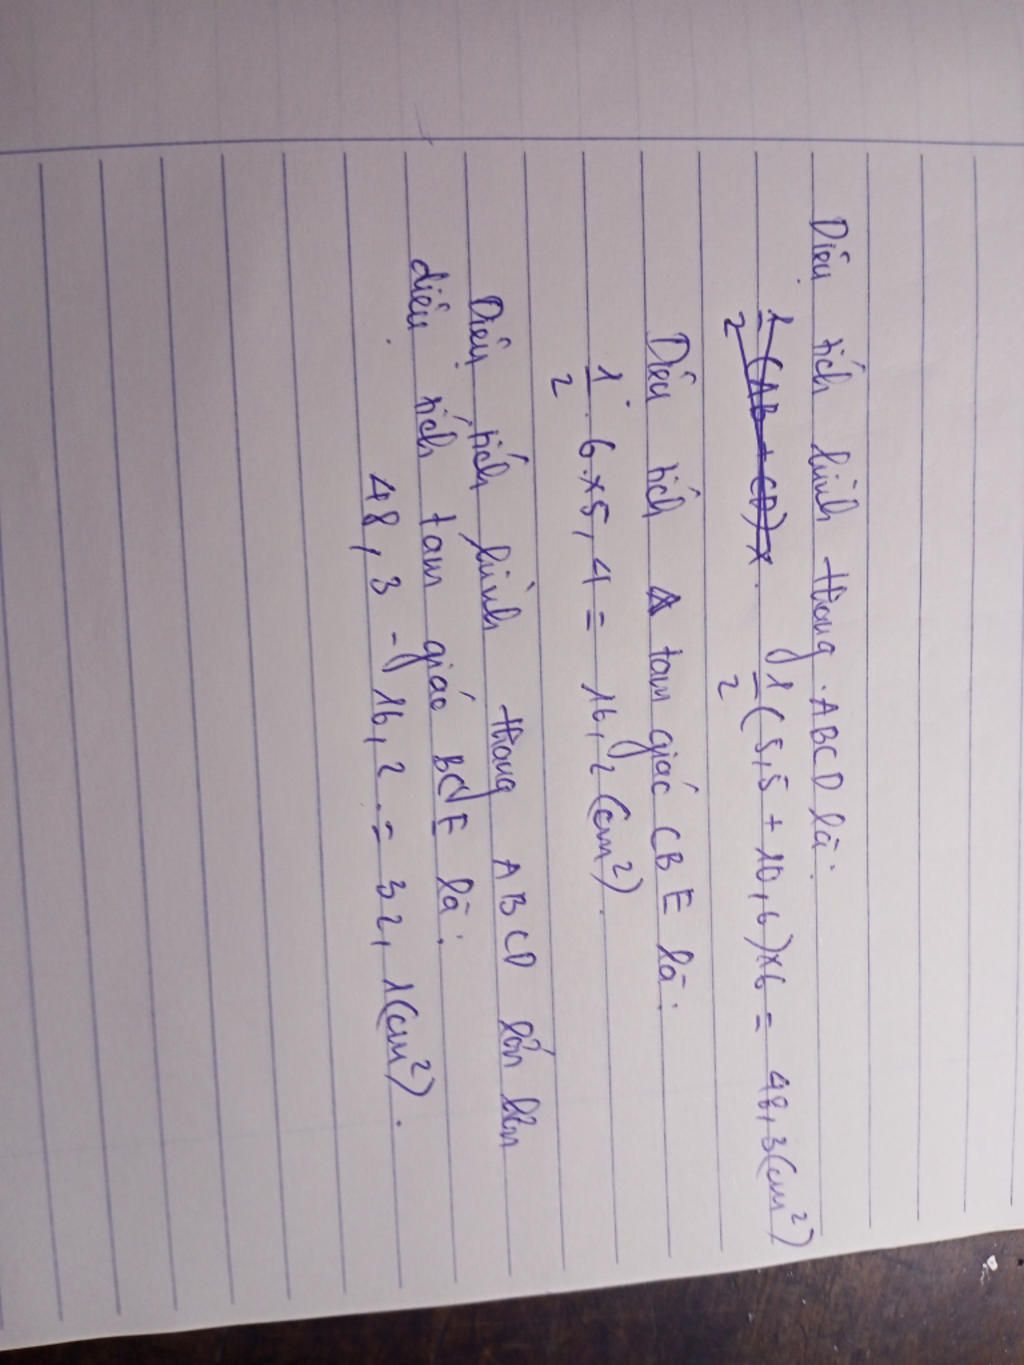 Diện tích hình thang ABCD là:
1/2 (AB + CD) x . 1/2 (5,5 + 10,6) x 6 = 48,3 (cm²)
Diện tích tam giác CBE là:
1/2 . 6 x 5,4 = 16,2 (cm²).
Diện tích hình thang ABCD lớn hơn
diện tích tam giác BCE là:
48,3 - 16,2 = 32,1 (cm²).